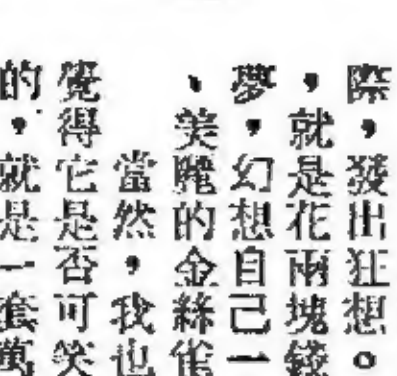 際，發出狂想。
，就是花兩塊錢
夢，幻想自己一
、美麗的金絲雀
當然，我也
覺得它是否可笑
的，就是一套萬